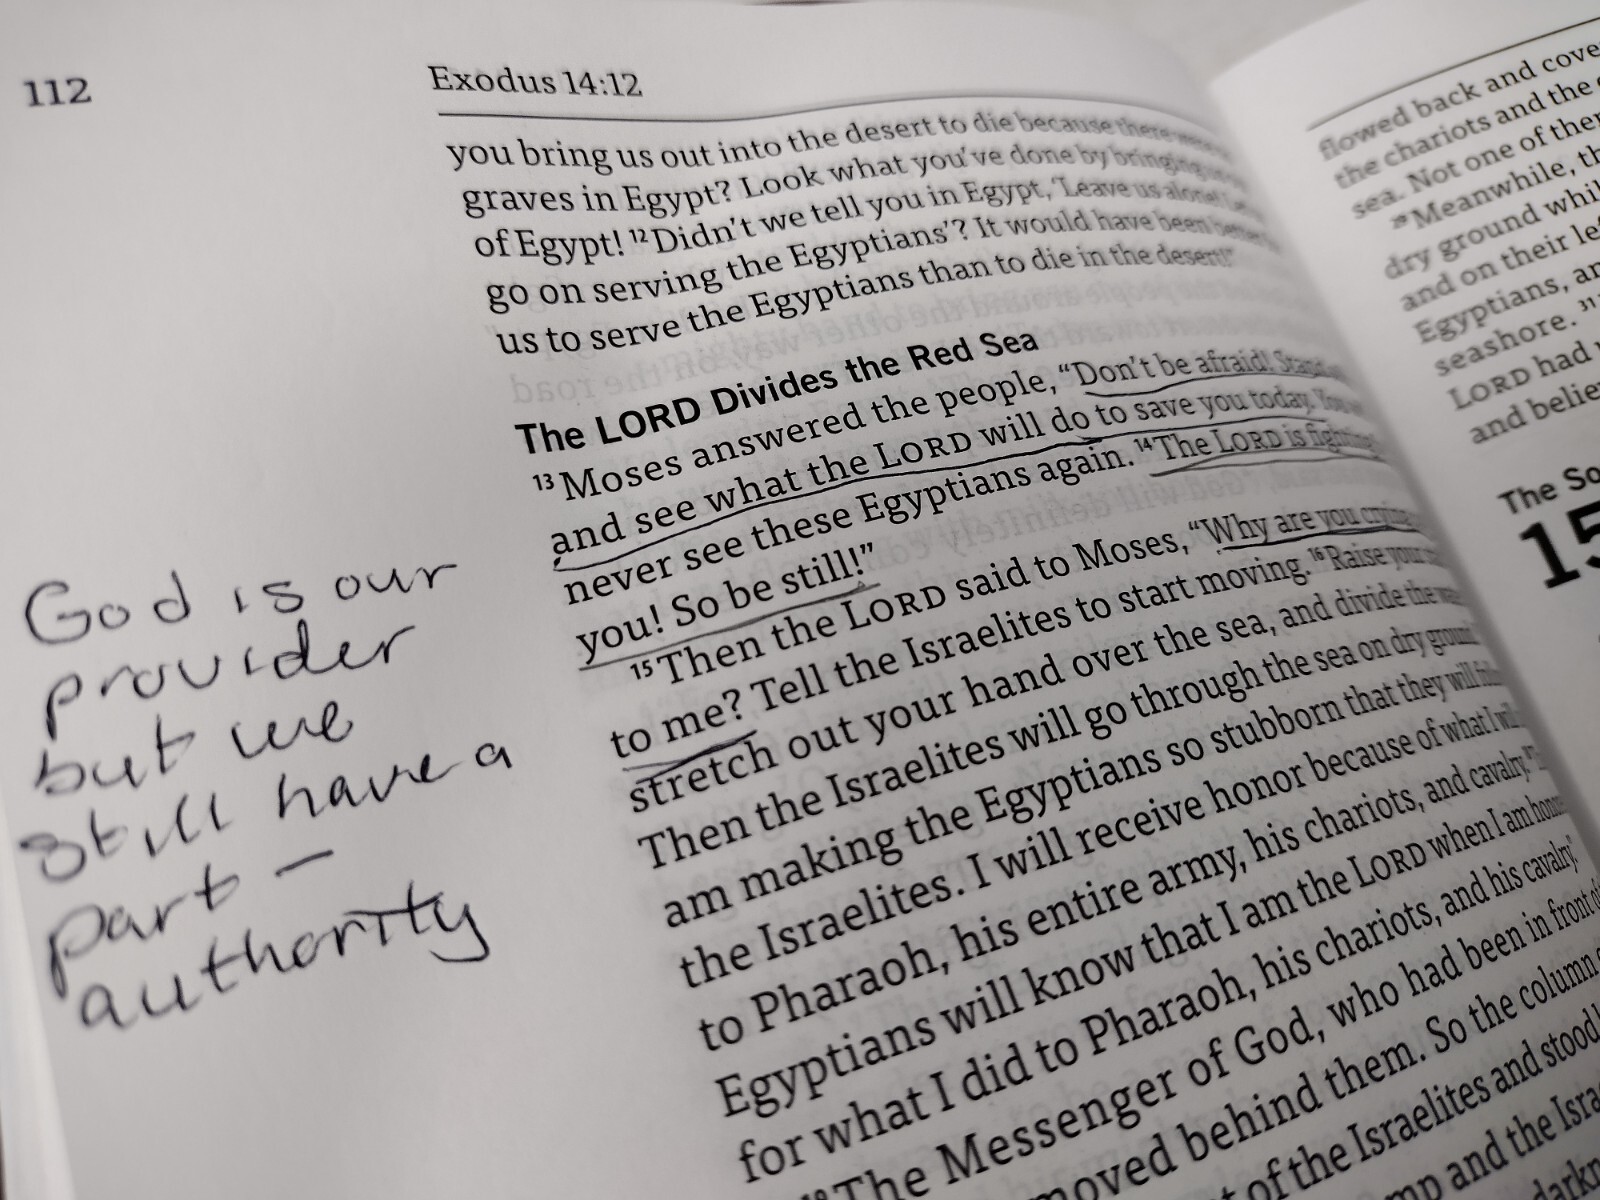 112
Exodus 14:12
you bring us out into the desert to die because there were
graves in Egypt? Look what you've done by bringing us
of Egypt! 12 Didn't we tell you in Egypt, 'Leave us alone!
go on serving the Egyptians'? It would have been better
us to serve the Egyptians than to die in the desert!"
The LORD Divides the Red Sea
13 Moses answered the people, "Don't be afraid! Stand
and see what the LORD will do to save you today. You
never see these Egyptians again. 14 The LORD is fighting
you! So be still!"
15 Then the LORD said to Moses, "Why are you crying
to me? Tell the Israelites to start moving. 16 Raise your
stretch out your hand over the sea, and divide the
Then the Israelites will go through the sea on dry ground
am making the Egyptians so stubborn that they will
the Israelites. I will receive honor because of what I will
to Pharaoh, his entire army, his chariots, and cavalry.
Egyptians will know that I am the LORD when I am
for what I did to Pharaoh, his chariots, and his cavalry."
The Messenger of God, who had been in front of
moved behind them. So the column
of the Israelites and stood
and the
God is our
provider
but we
still have a
part —
authority
flowed back and
the chariots and the
sea. Not one of
Meanwhile,
dry ground
and on their
Egyptians,
seashore. 31
LORD had
and
The
15